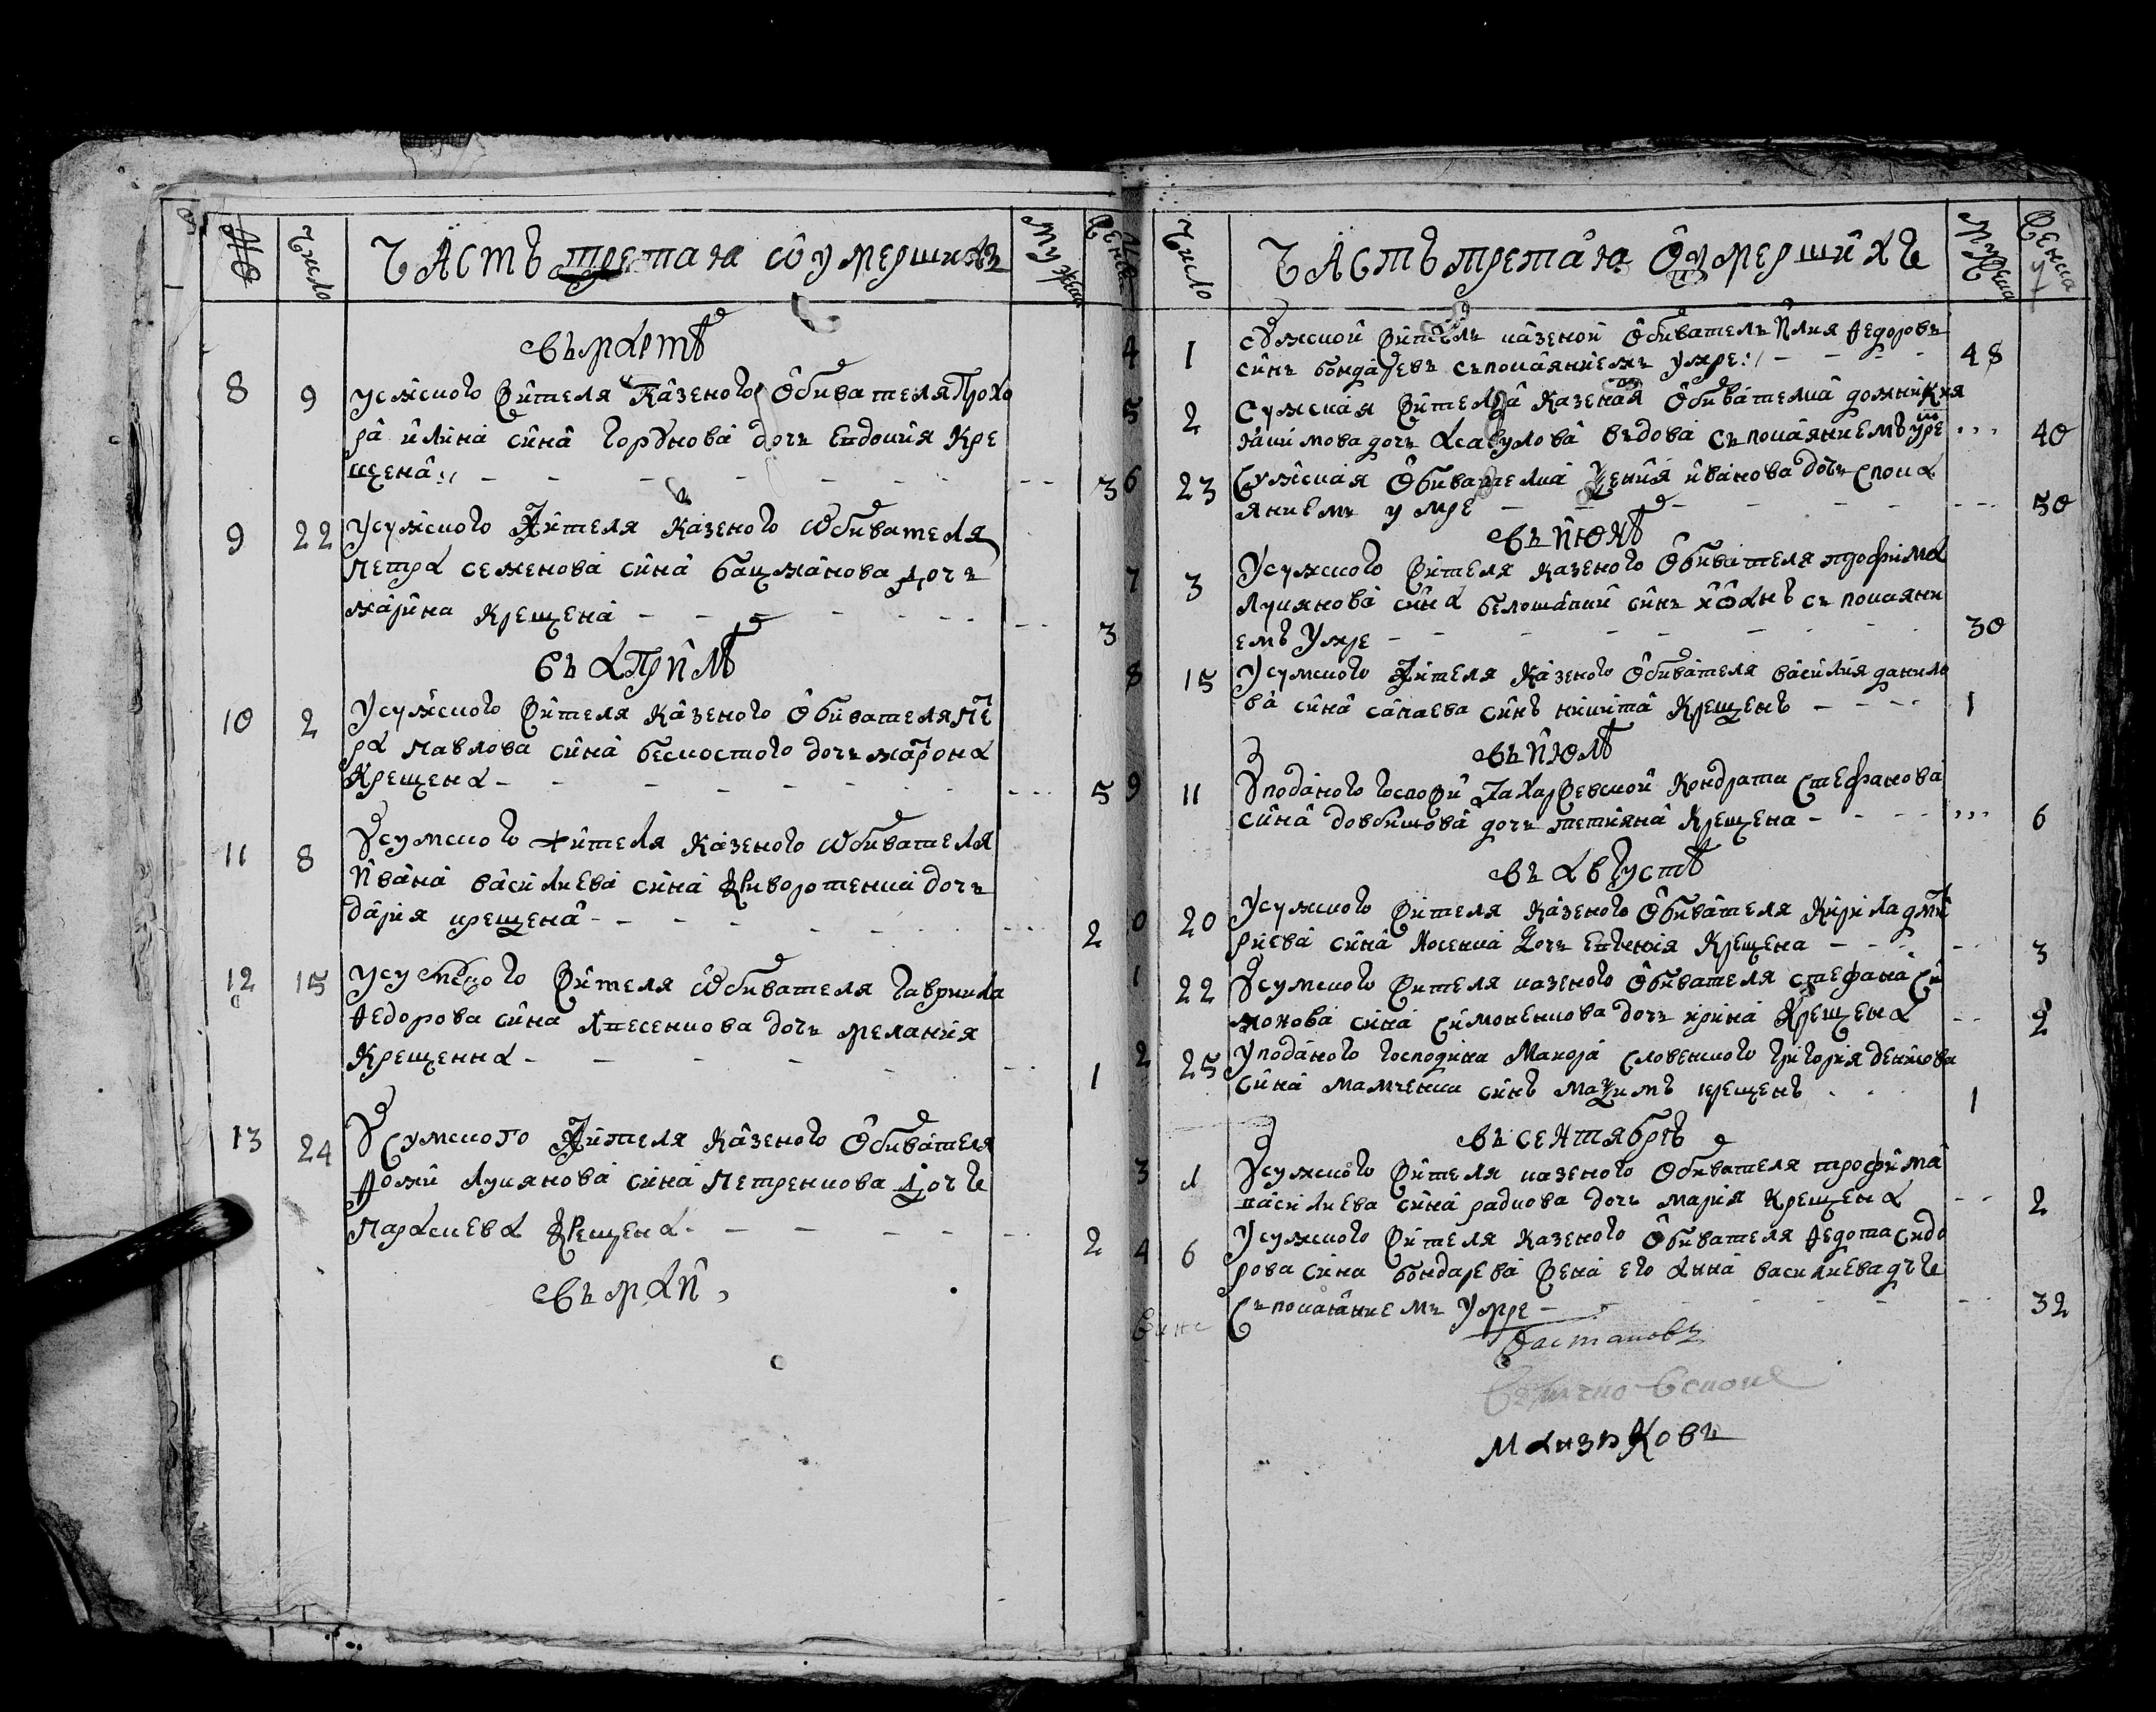 № Число ЧАсть третая ѡ умершихъ Мужеска Женска
въ мартѣ
8 9 У сумского жителя казеного обивателя Прохо
ра илина сина Горбунова дочь Евдокия Кре
щена 3
9 22 У сумского жителя казеного ѡбивателя
Петра семенова сина бацманова дочь
марина крещена 3
въ априлѣ
10 2 У сумского жителя казеного обивателя Пет
ра павлова сина бескостого дочь матрона
Крещена 5
11 8 У сумского жителя казеного ѡбивателя
Ивана василиева сина криворотенка дочь
дария крещена 2
12 15 У сумского жителя ѡбивателя гаврила
федорова сина дочь мелания
Крещенна 1
13 24 У сумского жителя казеного обивателя
фоми лукянова сина петренкова дочь
параскева крещена 2
въ маи
Число ЧАсть третая О умершихъ Мужеска Женска
4 1 сумской житель казеной обиватель Илия федоровъ
синъ бондаревъ съ покаяниемъ умре 48
5 2 Сумская жителка казеная обивателка домникия
якимова дочь вдова съ покаяниемъ умре 40
6 23 Сумская обивателка ксения иванова дочь с пока
яниемъ умре 50
въ июнѣ
7 3 У сумского жителя казеного обивателя трофима
лукянова сина белошапки синъ иоанъ съ покаяни
емъ умре 30
8 15 У сумского жителя казеного обивателя василия данило
ва сина сапаева синъ никита крещенъ 1
въ июлѣ
9 11 У поданого госпожи Захаржевской Кондрати стефанова
сина довбишова дочь тетияна крещена 6
въ августѣ
0 20 У сумского жителя казеного обивателя Кирила дмит
риева сина Носенка дочь евгения крещена 3
1 22 У сумского жителя казеного обивателя стефана си
монова сина симоненкова дочь ирина крещена 2
2 25 У поданого господина Маиора словенского григория денисова
сина мамченка синъ максимъ крещенъ 1
въ сентябрѣ
3 1 У сумского жителя казеного обивателя трофима
василиева сина радкова дочь мария крещена 2
4 6 У сумского жителя казеного обивателя федота сидо
рова сина бондарева жена его анна василиева дочь
съ покаяниемъ умре 32